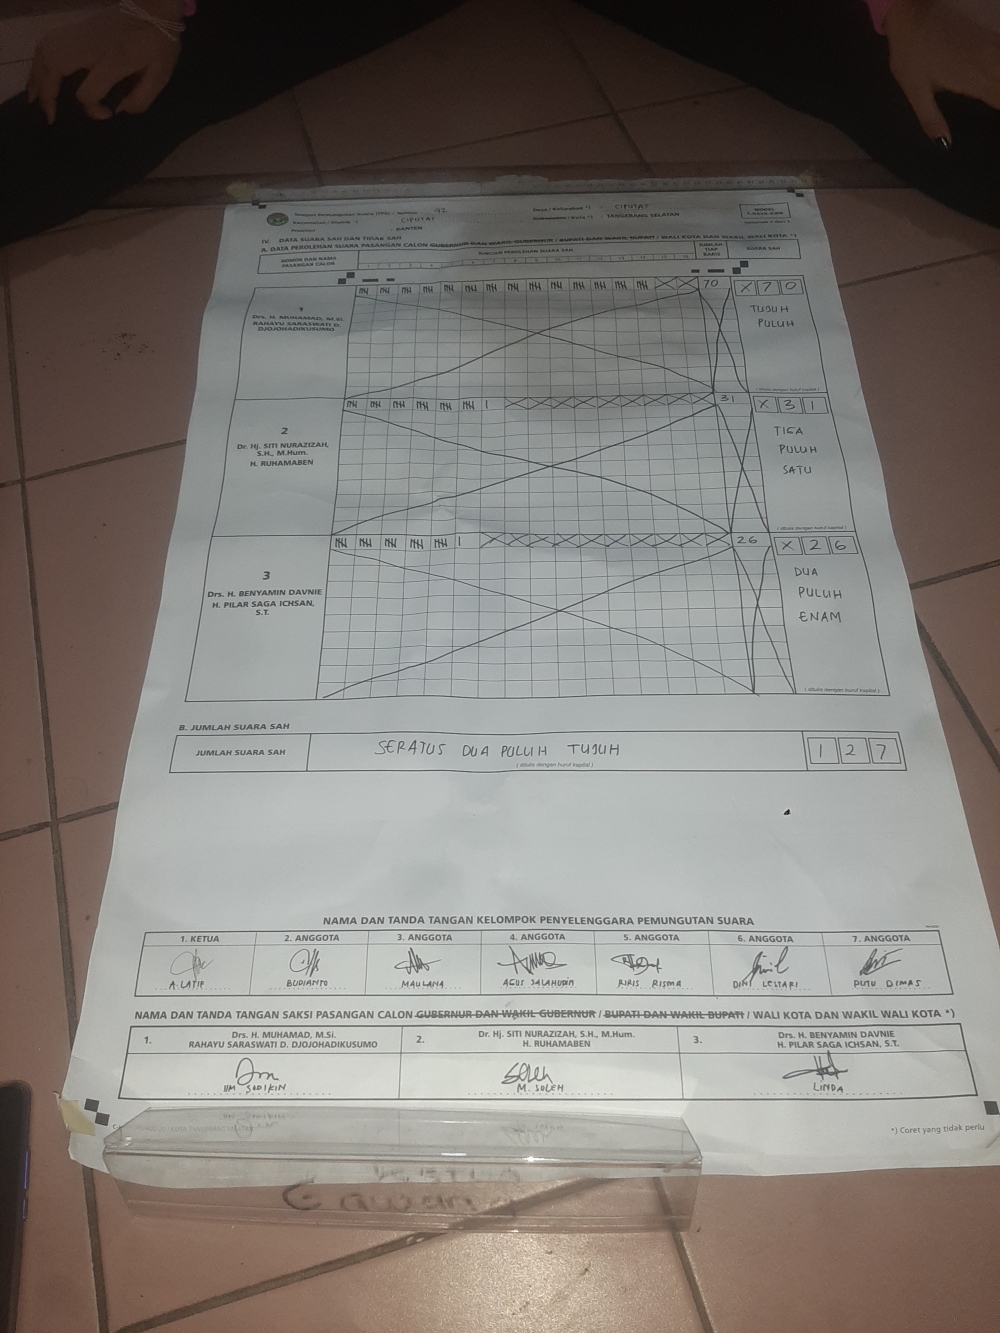 Tempat Pemungutan Suara (TPS) / Nomor : 92
Desa / Kelurahan *) : CIPUTAT
Kecamatan / Distrik *) : CIPUTAT
Kabupaten / Kota *) : TANGERANG SELATAN
Provinsi : BANTEN
MODEL
IV. DATA SUARA SAH DAN TIDAK SAH
A. DATA PEROLEHAN SUARA PASANGAN CALON GUBERNUR DAN WAKIL GUBERNUR / BUPATI DAN WAKIL BUPATI / WALI KOTA DAN WAKIL WALI KOTA *)
NOMOR DAN NAMA PASANGAN CALON
RINCIAN PEROLEHAN SUARA SAH
JUMLAH TIAP BARIS
SUARA SAH
1
Drs. H. MUHAMAD, M.Si.
RAHAYU SARASWATI D.
DJOJOHADIKUSUMO
70
X 7 0
TUJUH
PULUH
( ditulis dengan huruf kapital )
2
Dr. Hj. SITI NURAZIZAH,
S.H., M.Hum.
H. RUHAMABEN
31
X 3 1
TIGA
PULUH
SATU
( ditulis dengan huruf kapital )
3
Drs. H. BENYAMIN DAVNIE
H. PILAR SAGA ICHSAN,
S.T.
26
X 2 6
DUA
PULUH
ENAM
( ditulis dengan huruf kapital )
B. JUMLAH SUARA SAH
JUMLAH SUARA SAH
SERATUS DUA PULUH TUJUH
( ditulis dengan huruf kapital )
1 2 7
NAMA DAN TANDA TANGAN KELOMPOK PENYELENGGARA PEMUNGUTAN SUARA
1. KETUA 2. ANGGOTA 3. ANGGOTA 4. ANGGOTA 5. ANGGOTA 6. ANGGOTA 7. ANGGOTA
A. LATIF BUDIANTO MAULANA AGUS SALAHUDIN RIRIS RISMA DINI LESTARI PUTU DIMAS
NAMA DAN TANDA TANGAN SAKSI PASANGAN CALON GUBERNUR DAN WAKIL GUBERNUR / BUPATI DAN WAKIL BUPATI / WALI KOTA DAN WAKIL WALI KOTA *)
1. Drs. H. MUHAMAD, M.Si.
RAHAYU SARASWATI D. DJOJOHADIKUSUMO
2. Dr. Hj. SITI NURAZIZAH, S.H., M.Hum.
H. RUHAMABEN
3. Drs. H. BENYAMIN DAVNIE
H. PILAR SAGA ICHSAN, S.T.
IIM SODIKIN M. SOLEH LINDA
*) Coret yang tidak perlu